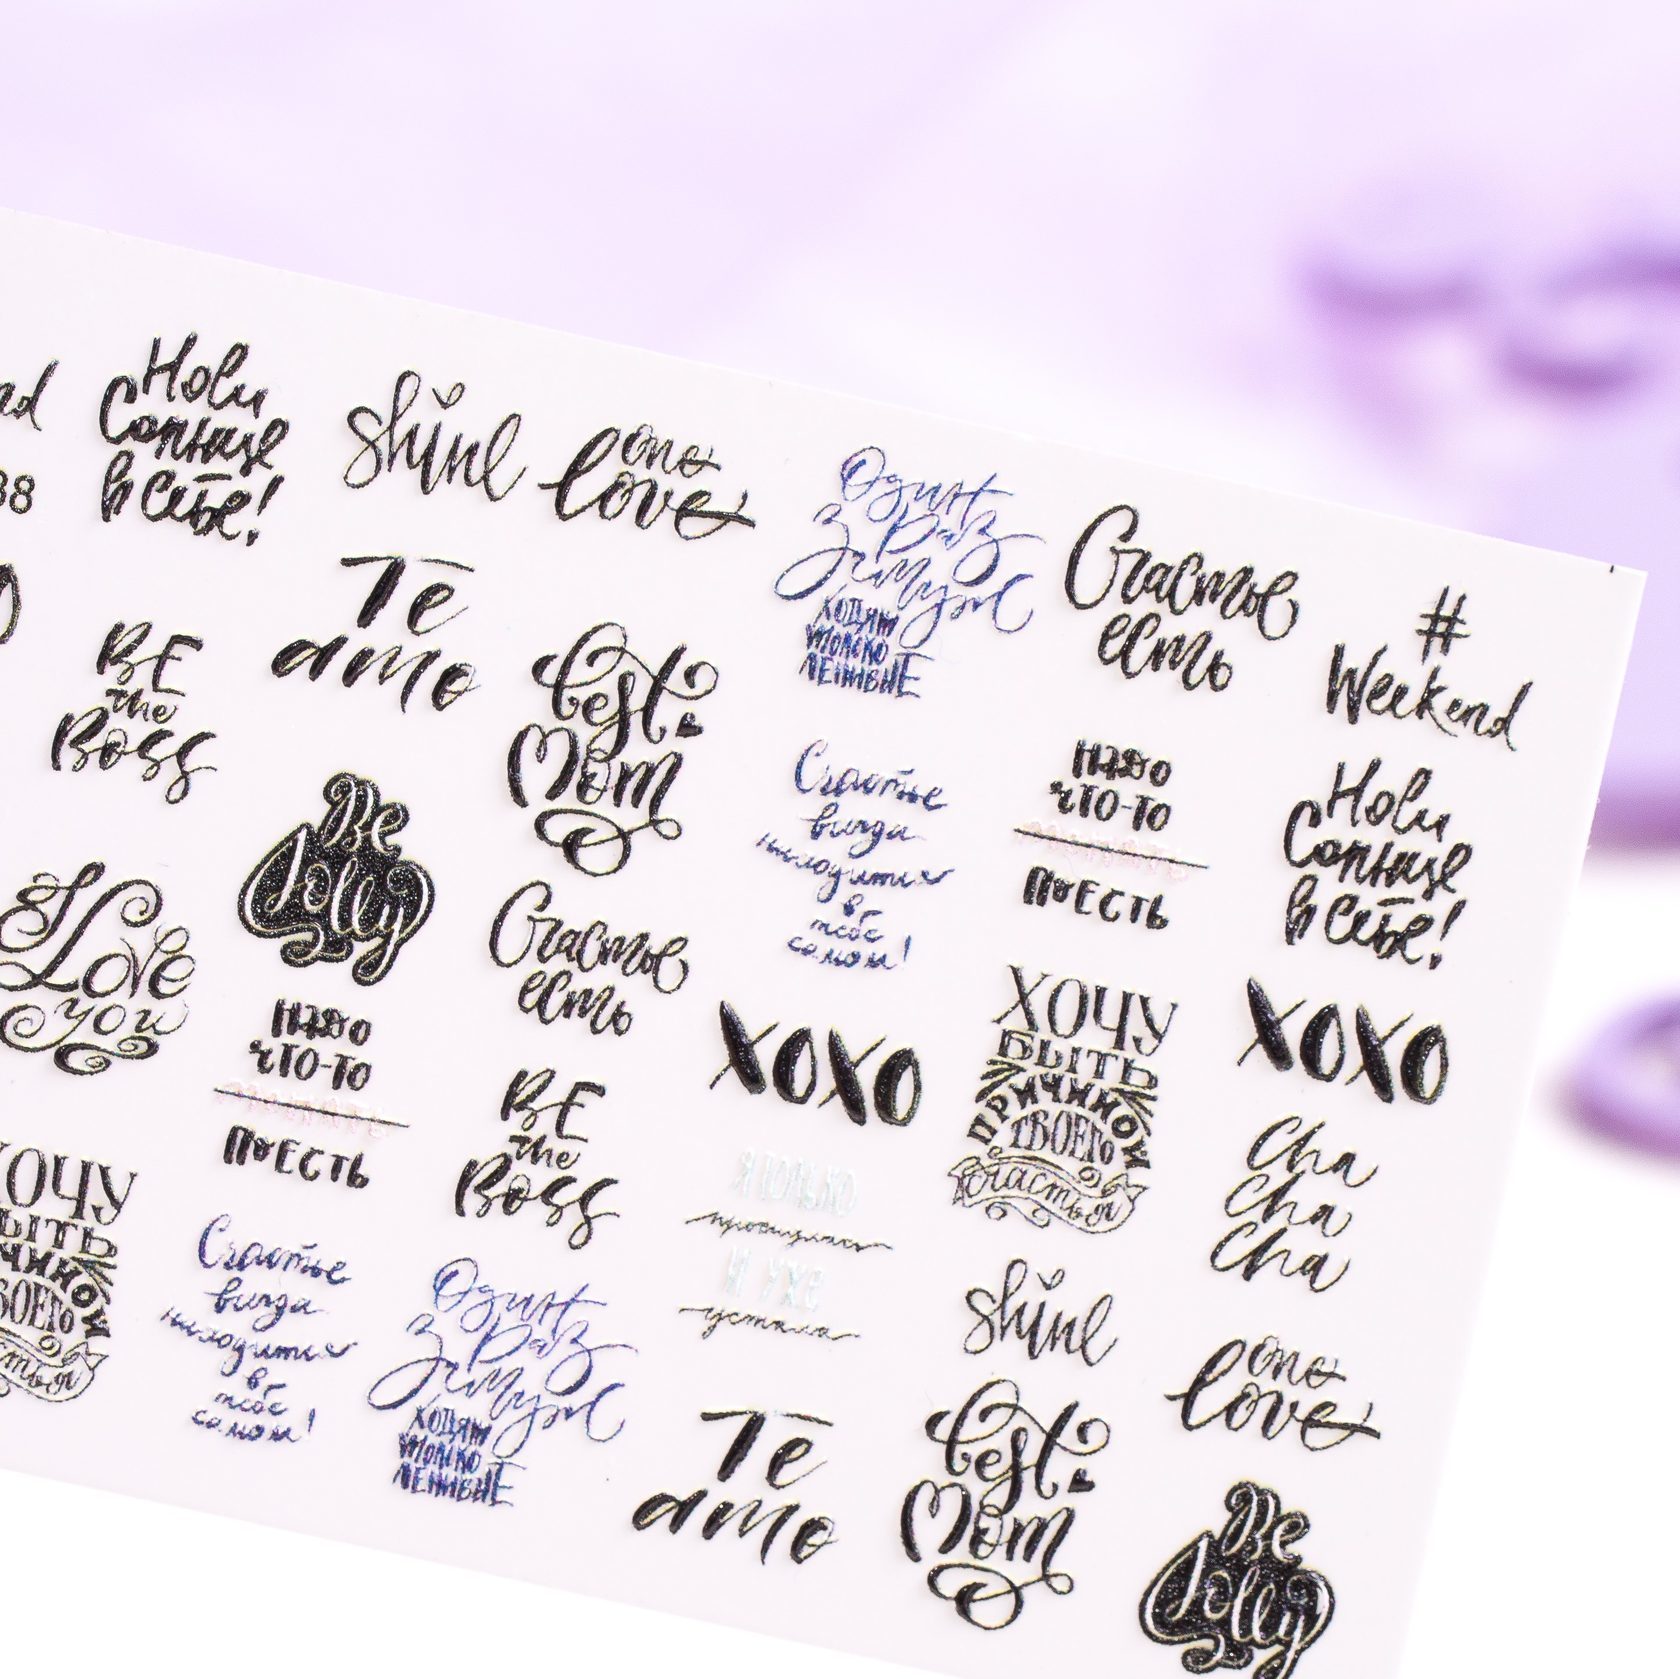 nd
88
Ноѕи
Солнце
в себе!
shine
one
love
Один
раз
замуж
ходят
только
ленивые
Счастье
есть
#
Weekend
Te
amo
BE
the
Boss
best
Mom
Счастье
всегда
находится
в
тебе
самом!
НАДО
ЧТО-ТО
ПОЕСТЬ
Носи
Солнце
в себе!
Be
Jolly
I Love
you
Счастье
есть
XOXO
ХОЧУ
БЫТЬ
ПРИЧИНОЙ
ТВОЕГО
счастья
XOXO
НАДО
ЧТО-ТО
ПОЕСТЬ
BE
the
Boss
Я ТОЛЬКО
проснулась
И УЖЕ
устала
Cha
Cha
Cha
ХОЧУ
БЫТЬ
ПРИЧИНОЙ
ТВОЕГО
счастья
Счастье
всегда
находится
в
тебе
самом!
Один
раз
замуж
ходят
только
ленивые
shine
one
love
Te
amo
best
Mom
Be
Jolly